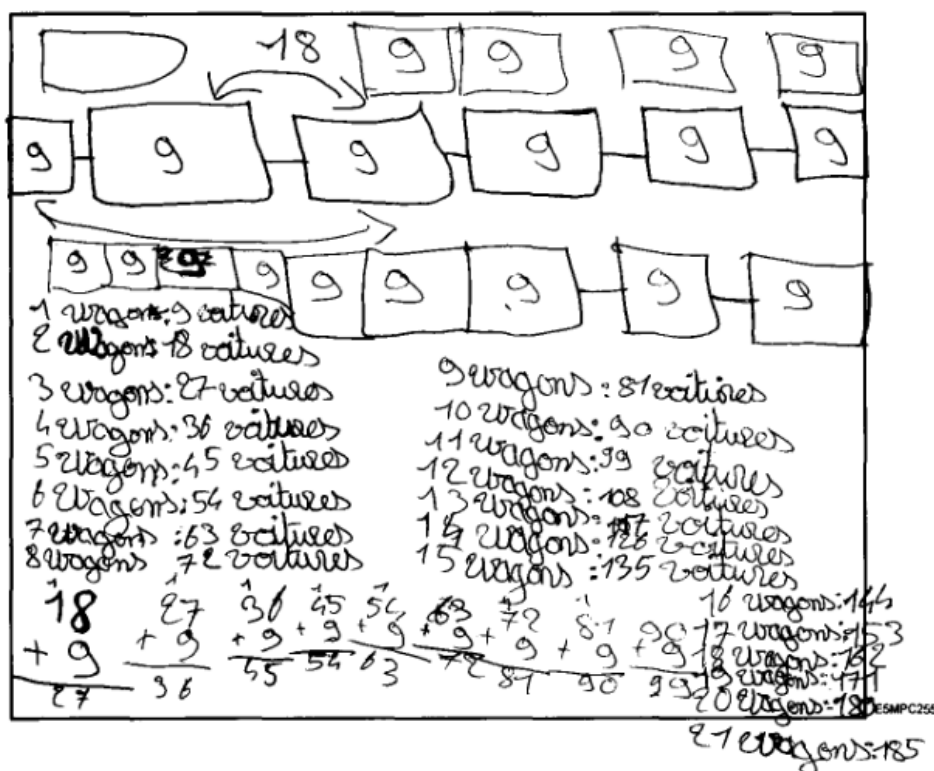 18 9 9 9 9
9 9 9 9 9 9
9 9 9 9 9 9 9 9 9
1 wagons: 9 voitures
2 wagons 18 voitures
3 wagons: 27 voitures
4 wagons: 36 voitures
5 wagons: 45 voitures
6 wagons: 54 voitures
7 wagons: 63 voitures
8 wagons 72 voitures
9 wagons: 81 voitures
10 wagons: 90 voitures
11 wagons: 99 voitures
12 wagons: 108 voitures
13 wagons: 117 voitures
14 wagons: 126 voitures
15 wagons: 135 voitures
16 wagons: 144
17 wagons: 153
18 wagons: 162
19 wagons: 171
20 wagons: 180
21 wagons: 185
1 1 1 1 1 1 1 1
18 27 36 45 54 63 72 81 90
+ 9 + 9 + 9 + 9 + 9 + 9 + 9 + 9 + 9
27 36 45 54 63 72 81 90 99
E5MPC255